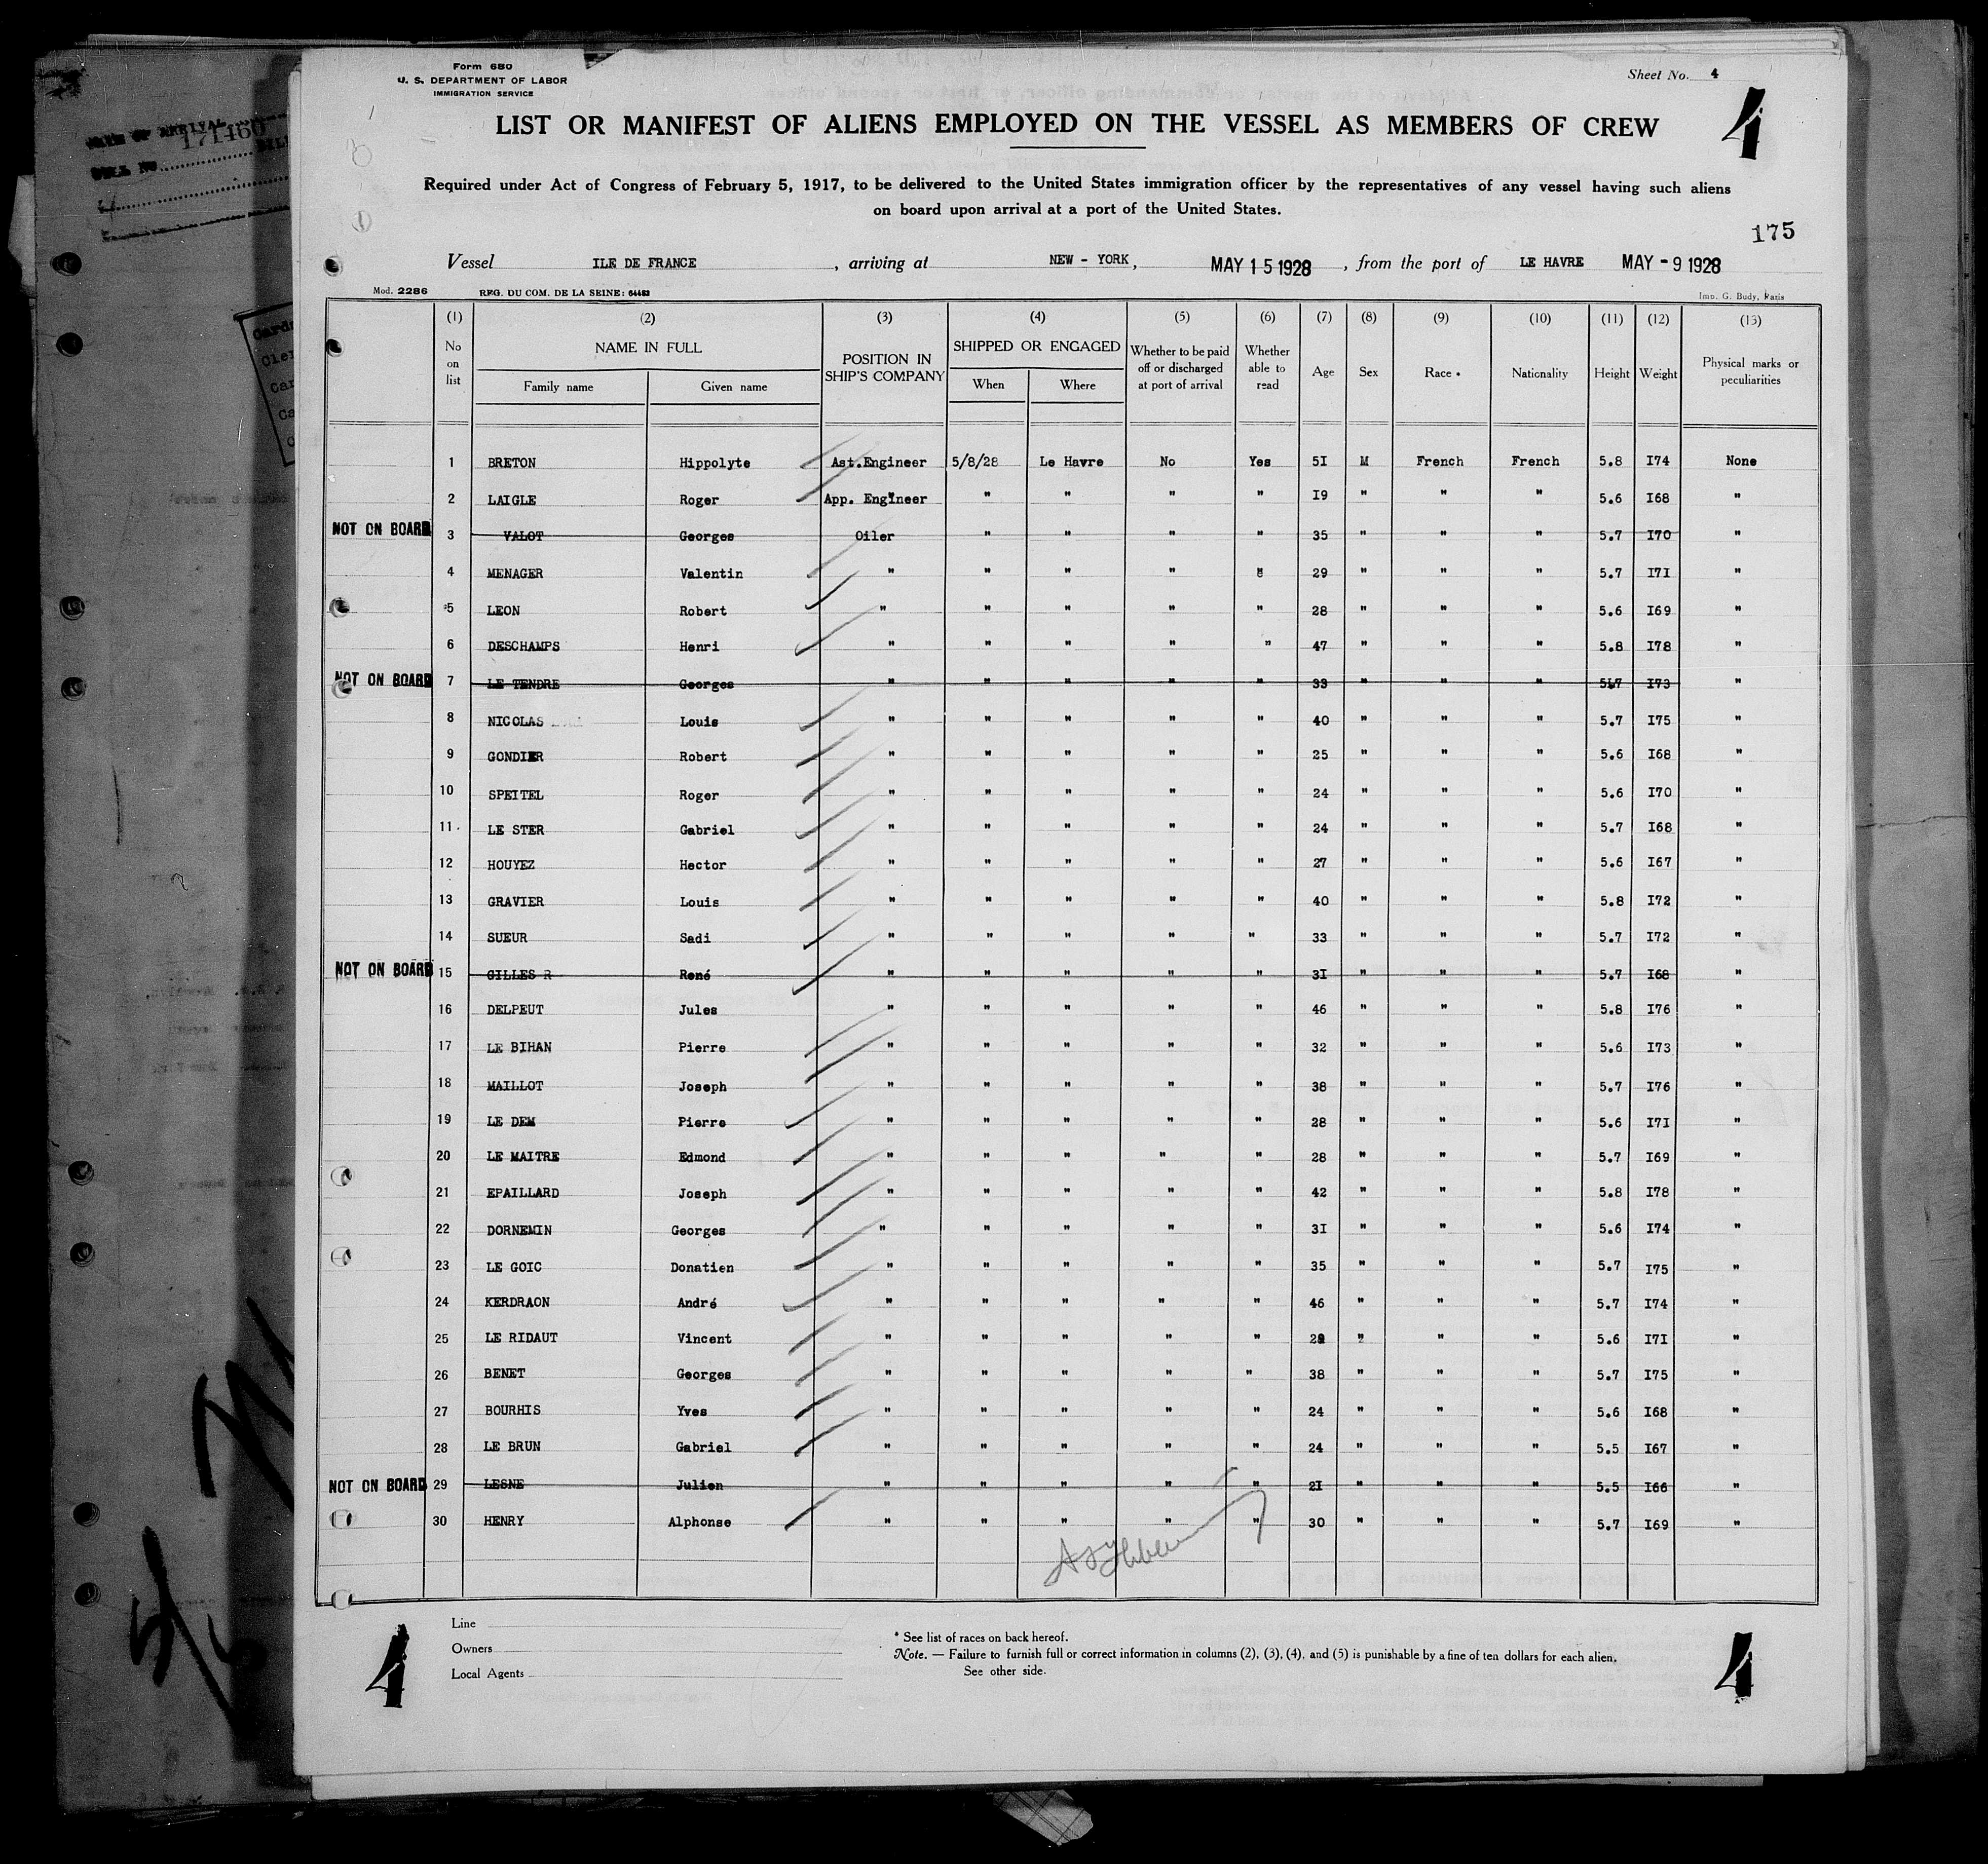 Form 680
U. S. DEPARTMENT OF LABOR
IMMIGRATION SERVICE
Sheet No. 4
4
LIST OR MANIFEST OF ALIENS EMPLOYED ON THE VESSEL AS MEMBERS OF CREW
Required under Act of Congress of February 5, 1917, to be delivered to the United States immigration officer by the representatives of any vessel having such aliens
on board upon arrival at a port of the United States.
175
Vessel ILE DE FRANCE, arriving at NEW - YORK, MAY 15 1928, from the port of LE HAVRE MAY - 9 1928
Mod. 2286 REG. DU COM. DE LA SEINE: 64483 Imp. G. Budy, Paris
(1) (2) (3) (4) (5) (6) (7) (8) (9) (10) (11) (12) (13)
No on list NAME IN FULL Family name Given name POSITION IN SHIP'S COMPANY SHIPPED OR ENGAGED When Where Whether to be paid off or discharged at port of arrival Whether able to read Age Sex Race * Nationality Height Weight Physical marks or peculiarities
1 BRETON Hippolyte Ast.Engineer 5/8/28 Le Havre No Yes 5I M French French 5.8 I74 None
2 LAIGLE Roger App. Engineer " " " " I9 " " " 5.6 I68 "
NOT ON BOARD 3 VALOT Georges Oiler " " " " 35 " " " 5.7 I70 "
4 MENAGER Valentin " " " " " 29 " " " 5.7 I7I "
5 LEON Robert " " " " " 28 " " " 5.6 I69 "
6 DESCHAMPS Henri " " " " " 47 " " " 5.8 I78 "
NOT ON BOARD 7 LE TENDRE Georges " " " " " 33 " " " 5.7 I73 "
8 NICOLAS Louis " " " " " 40 " " " 5.7 I75 "
9 GONDIER Robert " " " " " 25 " " " 5.6 I68 "
10 SPEITEL Roger " " " " " 24 " " " 5.6 I70 "
11 LE STER Gabriel " " " " " 24 " " " 5.7 I68 "
12 HOUYEZ Hector " " " " " 27 " " " 5.6 I67 "
13 GRAVIER Louis " " " " " 40 " " " 5.8 I72 "
14 SUEUR Sadi " " " " " 33 " " " 5.7 I72 "
NOT ON BOARD 15 GILLES R René " " " " " 3I " " " 5.7 I68 "
16 DELPEUT Jules " " " " " 46 " " " 5.8 I76 "
17 LE BIHAN Pierre " " " " " 32 " " " 5.6 I73 "
18 MAILLOT Joseph " " " " " 38 " " " 5.7 I76 "
19 LE DEM Pierre " " " " " 28 " " " 5.6 I7I "
20 LE MAITRE Edmond " " " " " 28 " " " 5.7 I69 "
21 EPAILLARD Joseph " " " " " 42 " " " 5.8 I78 "
22 DORNEMIN Georges " " " " " 3I " " " 5.6 I74 "
23 LE GOIC Donatien " " " " " 35 " " " 5.7 I75 "
24 KERDRAON André " " " " " 46 " " " 5.7 I74 "
25 LE RIDAUT Vincent " " " " " " " " 5.6 I7I "
26 BENET Georges " " " " " 38 " " " 5.7 I75 "
27 BOURHIS Yves " " " " " 24 " " " 5.6 I68 "
28 LE BRUN Gabriel " " " " " 24 " " " 5.5 I67 "
NOT ON BOARD 29 LESNE Julien " " " " " 2I " " " 5.5 I66 "
30 HENRY Alphonse " " " " " 30 " " " 5.7 I69 "
Line
Owners
Local Agents
* See list of races on back hereof.
Note. — Failure to furnish full or correct information in columns (2), (3), (4), and (5) is punishable by a fine of ten dollars for each alien.
See other side.
4
4
171460